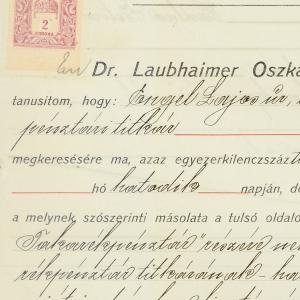 2
KORONA
En Dr. Laubhaimer Oszká
tanusitom, hogy: Engel Lajos úr,
pénztári titkár
megkeresésére ma, azaz egyezerkilenczszáz
hó hatodik napján, de
a melynek szószerinti másolata a tulsó oldalo
Takarékpénztár" részére
rékpénztár titkárának - ha